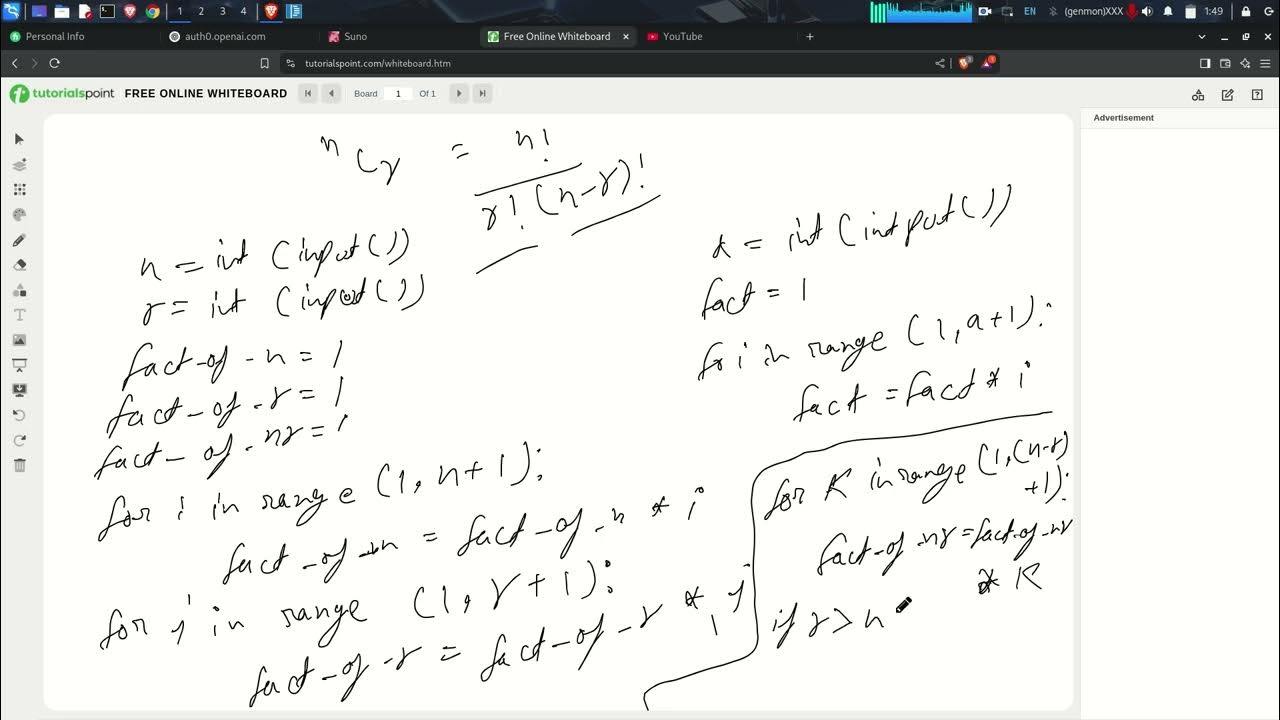 1 2 3 4 EN (genmon)XXX 1:49
Personal Info auth0.openai.com Suno Free Online Whiteboard YouTube
tutorialspoint.com/whiteboard.htm
tutorialspoint FREE ONLINE WHITEBOARD Board 1 Of 1
Advertisement
nCr = n!
r! (n-r)!
n = int (input())
r = int (input())
fact-of-n = 1
fact-of-r = 1
fact-of-nr = 1
for i in range (1, n+1):
fact-of-n = fact-of-n * i
for j in range (1, r+1):
fact-of-r = fact-of-r * j
= int (intput())
fact = 1
for i in range (1, a+1):
fact = fact * i
for K in range (1, (n-r)
+1):
fact-of-nr = fact-of-nr
* K
if r > n